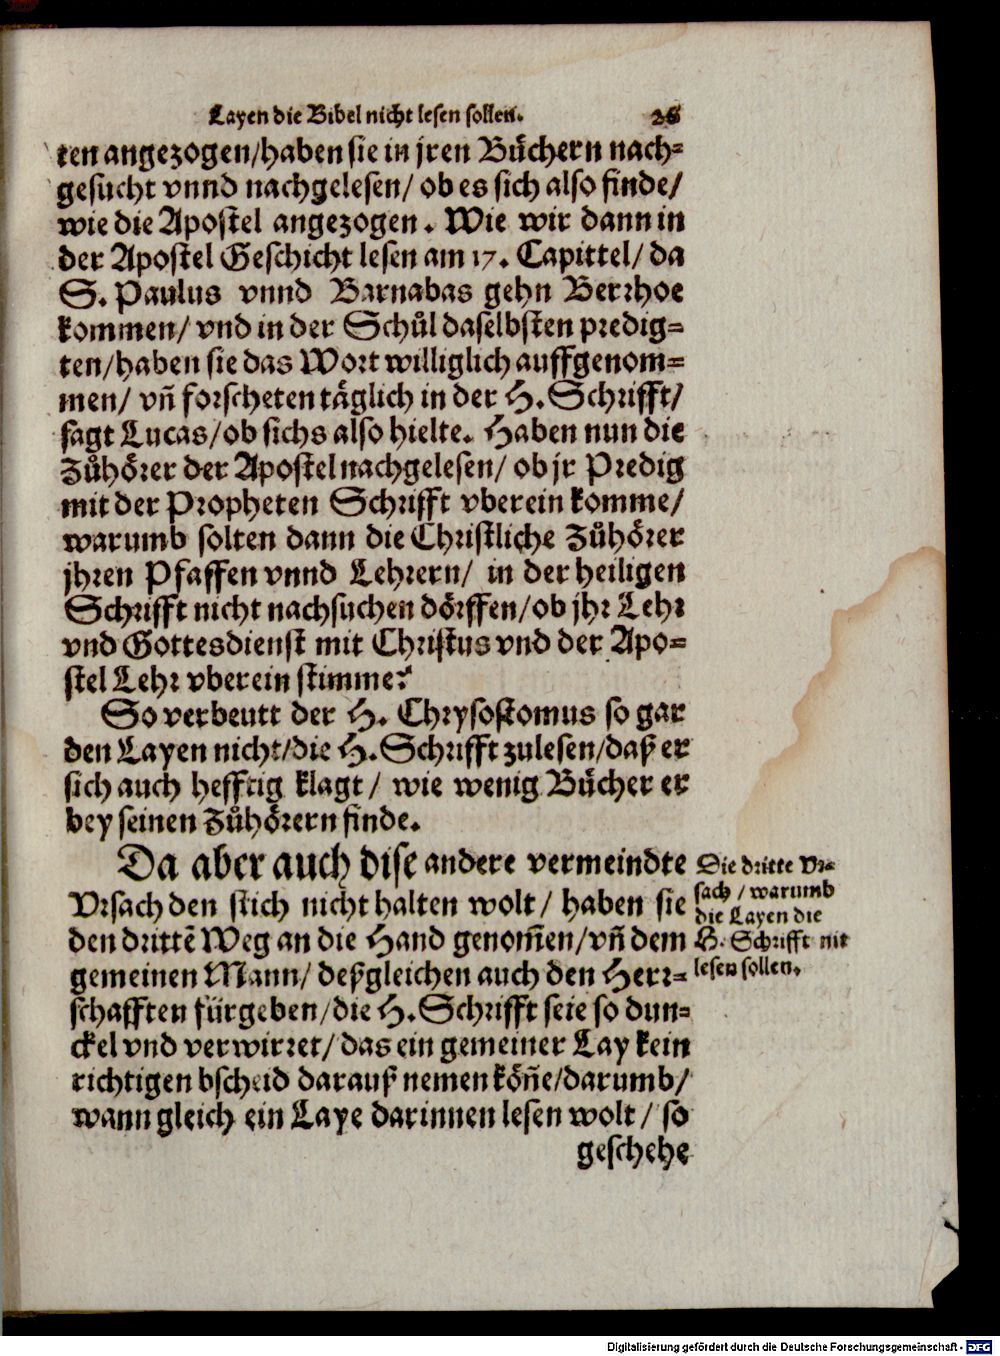 Layen die Bibel nicht lesen sollen. 26
ten angezogen/haben sie in jren Bůchern nach-
gesucht vnnd nachgelesen/ ob es sich also finde/
wie die Apostel angezogen. Wie wir dann in
der Apostel Geschicht lesen am 17. Capittel/ da
S. Paulus vnnd Barnabas gehn Berrhoe
kommen/ vnd in der Schůl daselbsten predig-
ten/haben sie das Wort williglich auffgenom-
men/ vñ forscheten täglich in der H. Schrifft/
sagt Lucas/ob sichs also hielte. Haben nun die
Zůhörer der Apostel nachgelesen/ ob jr Predig
mit der Propheten Schrifft vberein komme/
warumb solten dann die Christliche Zůhörer
jhren Pfaffen vnnd Lehrern/ in der heiligen
Schrifft nicht nachsuchen dörffen/ob jhr Lehr
vnd Gottesdienst mit Christus vnd der Apo-
stel Lehr vberein stimme?
So verbeutt der H. Chrysostomus so gar
den Layen nicht/die H. Schrifft zulesen/daß er
sich auch hefftig klagt/ wie wenig Bücher er
bey seinen Zůhörern finde.
Da aber auch dise andere vermeindte
Vrsach den stich nicht halten wolt/ haben sie
den drittẽ Weg an die Hand genom̃en/vñ dem
gemeinen Mann/ deßgleichen auch den Herr-
schafften fürgeben/die H. Schrifft seie so dun-
ckel vnd verwirret/ das ein gemeiner Lay kein
richtigen bscheid darauß nemen köñe/darumb/
wann gleich ein Laye darinnen lesen wolt/ so
geschehe
Die dritte Vr-
sach/ warumb
die Layen die
H. Schrifft nit
lesen sollen.
Digitalisierung gefördert durch die Deutsche Forschungsgemeinschaft - DFG